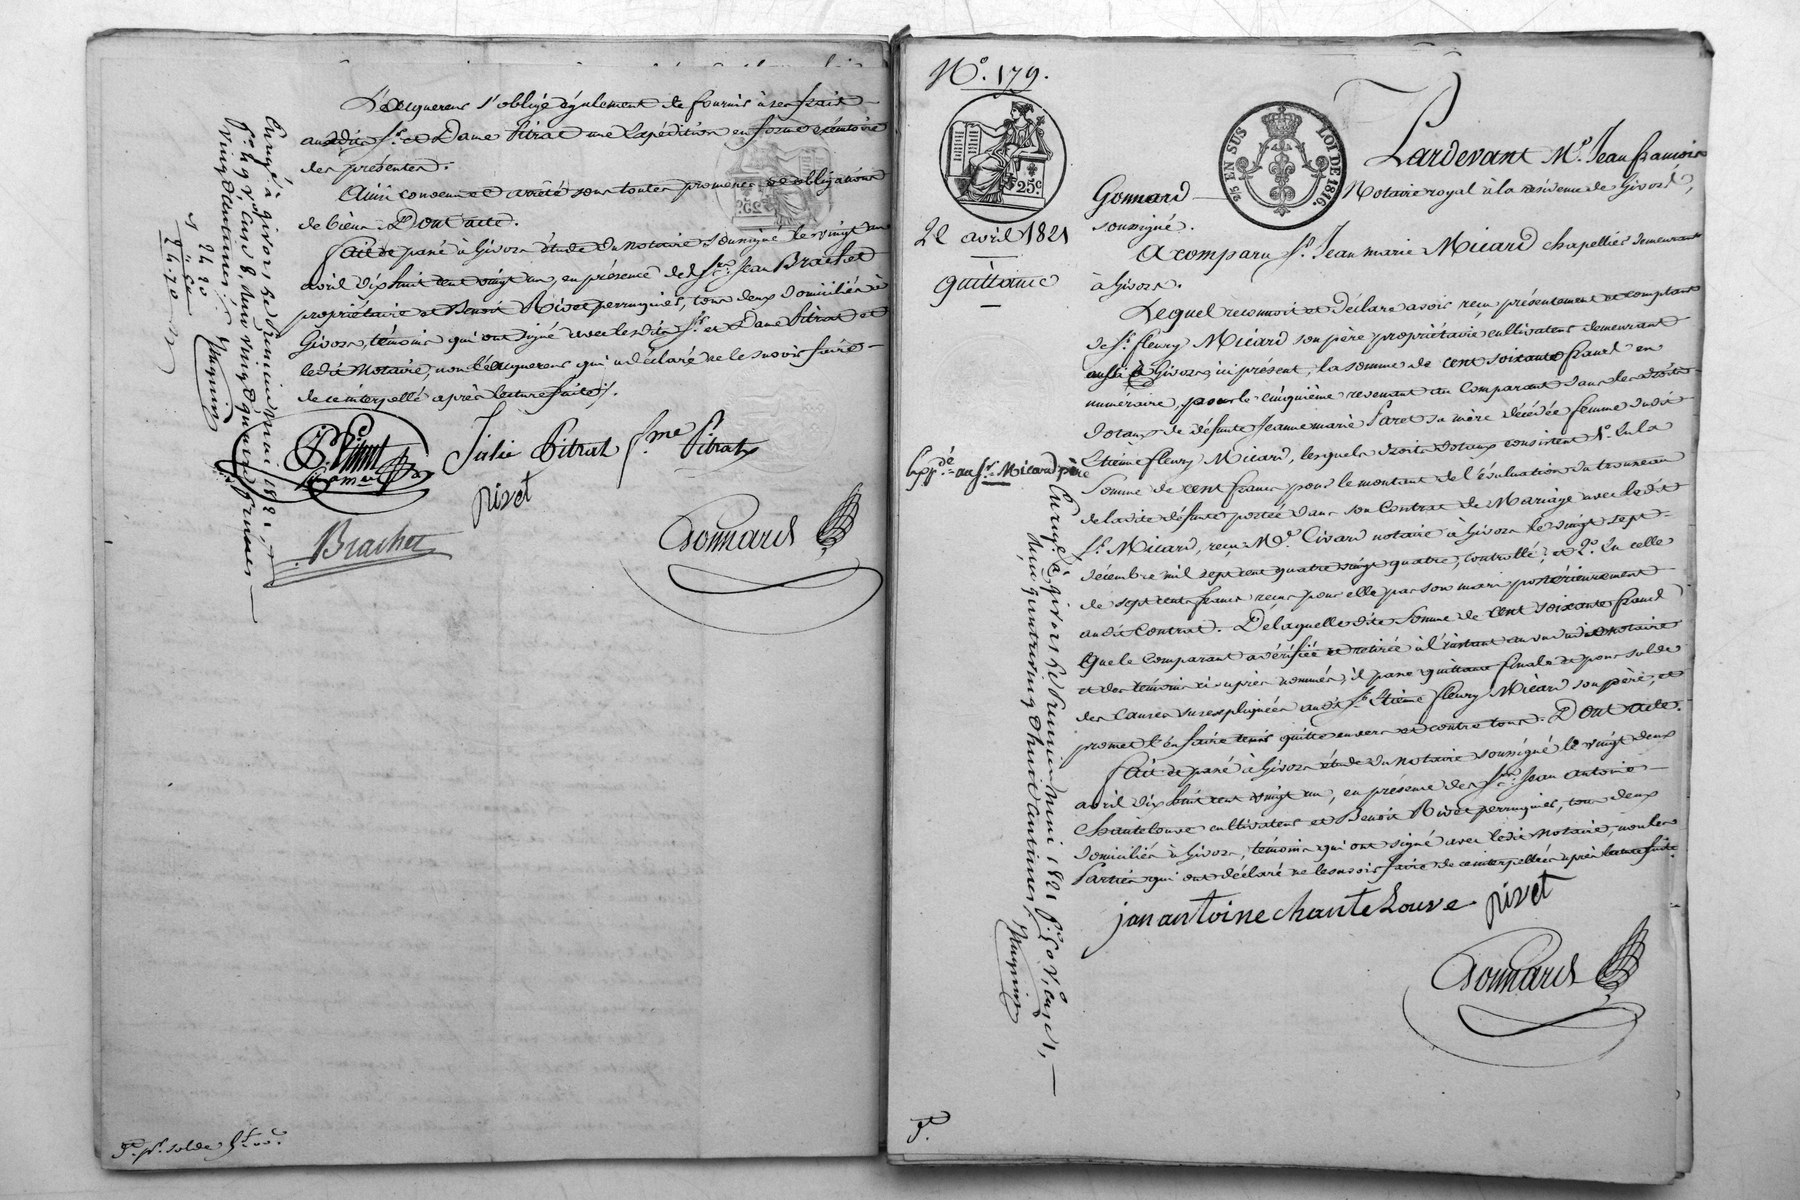 L'acquereur s'oblige également de fournir à ses frais
auxdits Sr. et Dame Pitrat une Expédition en forme exécutoire
des présentes.
Ainsi convenu et arrêté sous toutes promesses et obligations
de biens. Dont acte.
Fait et passé à Givors étude du notaire soussigné le vingt un
avril dix huit cent vingt un, en présence de Srs. Jean Brachet
propriétaire et Benoit Rivet perruquier, tous deux domiciliés à
Givors, témoins qui ont signé avec lesdits Sr. et Dame Pitrat et
ledit Notaire, non l'acquereur qui a déclaré ne le savoir faire
de ce interpellé après lecture faite.
Julie Pitrat fme Pitrat
rivet
Brachet
Gonnard
Enrgé à givors le premier mai 1821
vingt centimes.
pr. solde
No. 179.
25c.
2/5 EN SUS LOI DE 1816.
22 avril 1821
quittance
Expde. au Sr. Micard père
Pardevant Me. Jean françois
Gonnard Notaire royal à la résidence de Givors,
soussigné.
A comparu Sr. Jean marie Micard chapellier demeurant
à Givors.
Lequel reconnoit et déclare avoir reçu présentement et comptant
de Sr. fleury Micard son père propriétaire cultivateur demeurant
aussi à Givors, ici présent, la somme de cent soixante francs en
numéraire, pour le cinquième revenant au Comparant dans les droits
dotaux de défunte Jeanne marie Paret sa mère décédée femme dudit
Etiéne fleury Micard, lesquels droits dotaux consistent 1o. En la
Somme de cent francs pour le montant de l'évaluation du trousseau
de ladite défunte porté dans son Contrat de Mariage avec ledit
Sr. Micard, reçu Me. Civard notaire à Givors le vingt sept
décembre mil sept cent quatre vingt quatre, controllé; et 2o. En celle
de sept cents francs reçus pour elle par son mari postérieurement
audit Contrat. De laquelle dite Somme de cent soixante francs
que le Comparant a vérifiée et retirée à l'instant au vu dudit notaire
et des témoins ci après nommés, il passe quittance finale et pour solde
des causes sus expliquées audit Sr. Etiéne fleury Micard son père, et
promet l'en faire tenir quitte envers et contre tous. Dont acte.
Fait et passé à Givors étude du notaire soussigné le vingt deux
avril dix huit cent vingt un, en présence des Srs. Jean antoine
Chantelouve cultivateur et Benoit Rivet perruquier, tous deux
domiciliés à Givors, témoins qui ont signé avec ledit notaire, non les
Parties qui ont déclaré ne le savoir faire de ce interpellées après lecture faite.
jan antoine chante Louve rivet
Gonnard
Enrgé à givors le premier mai 1821